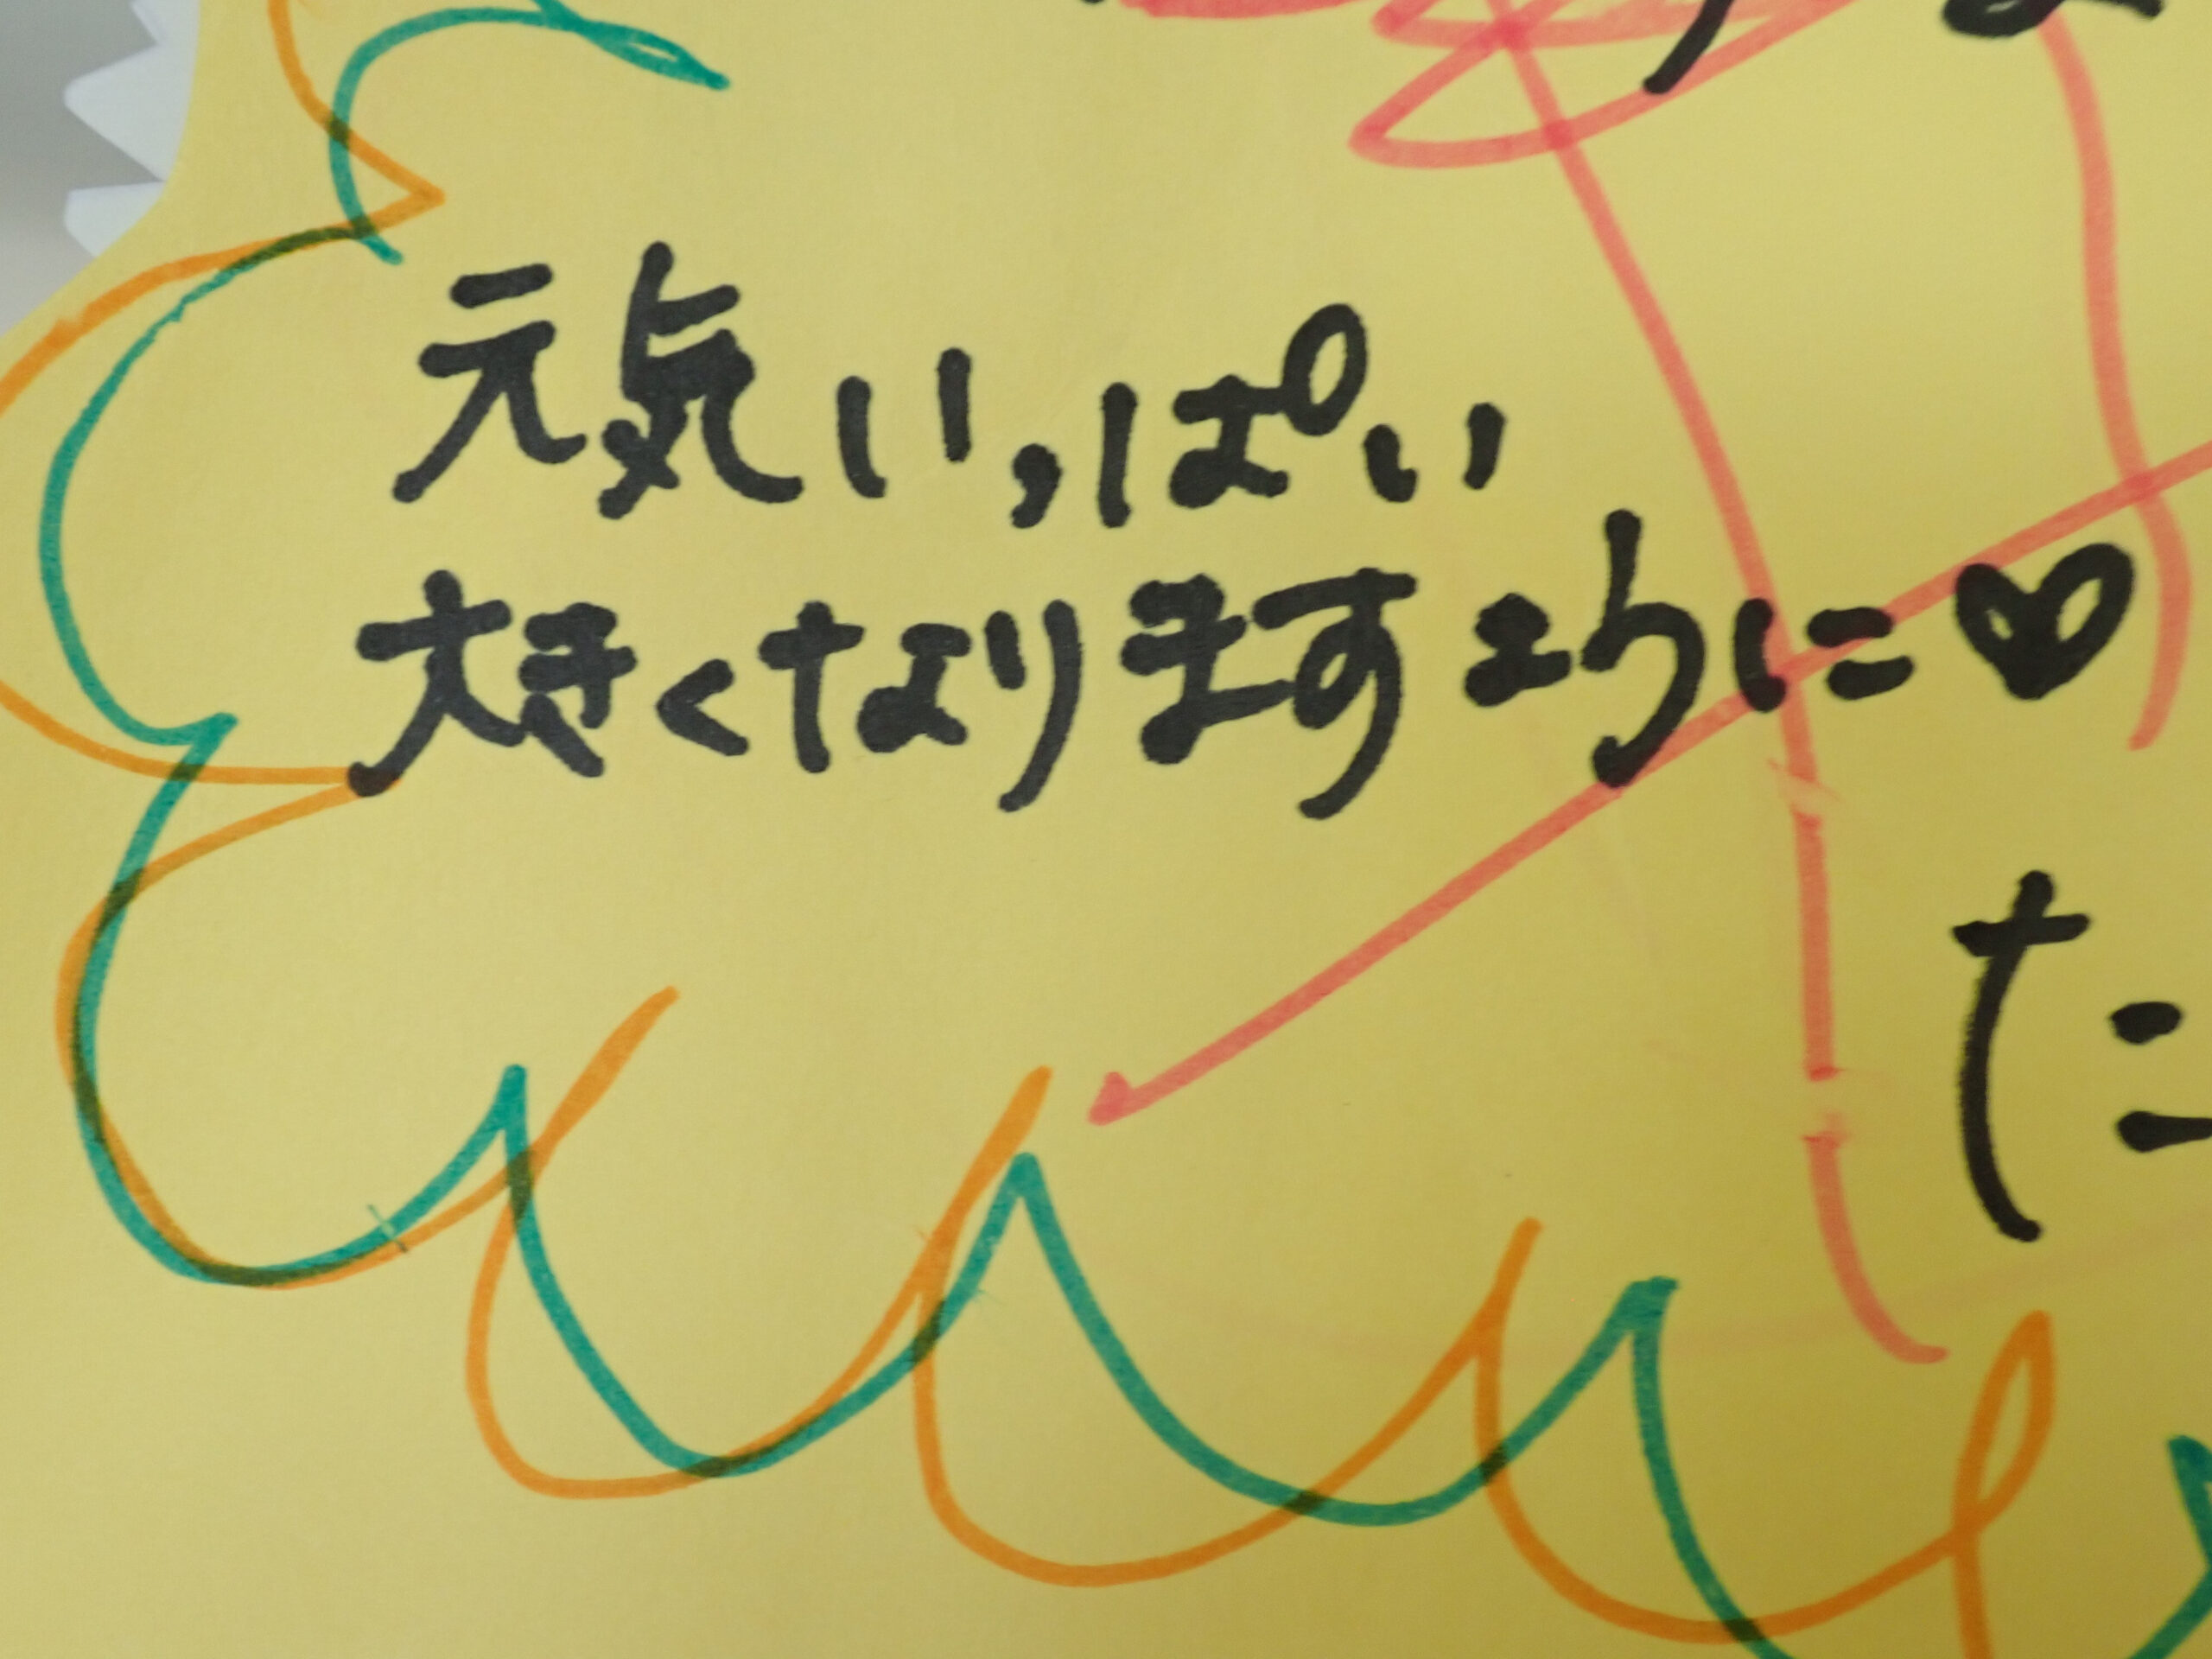 元気いっぱい
大きくなりますように♥
た